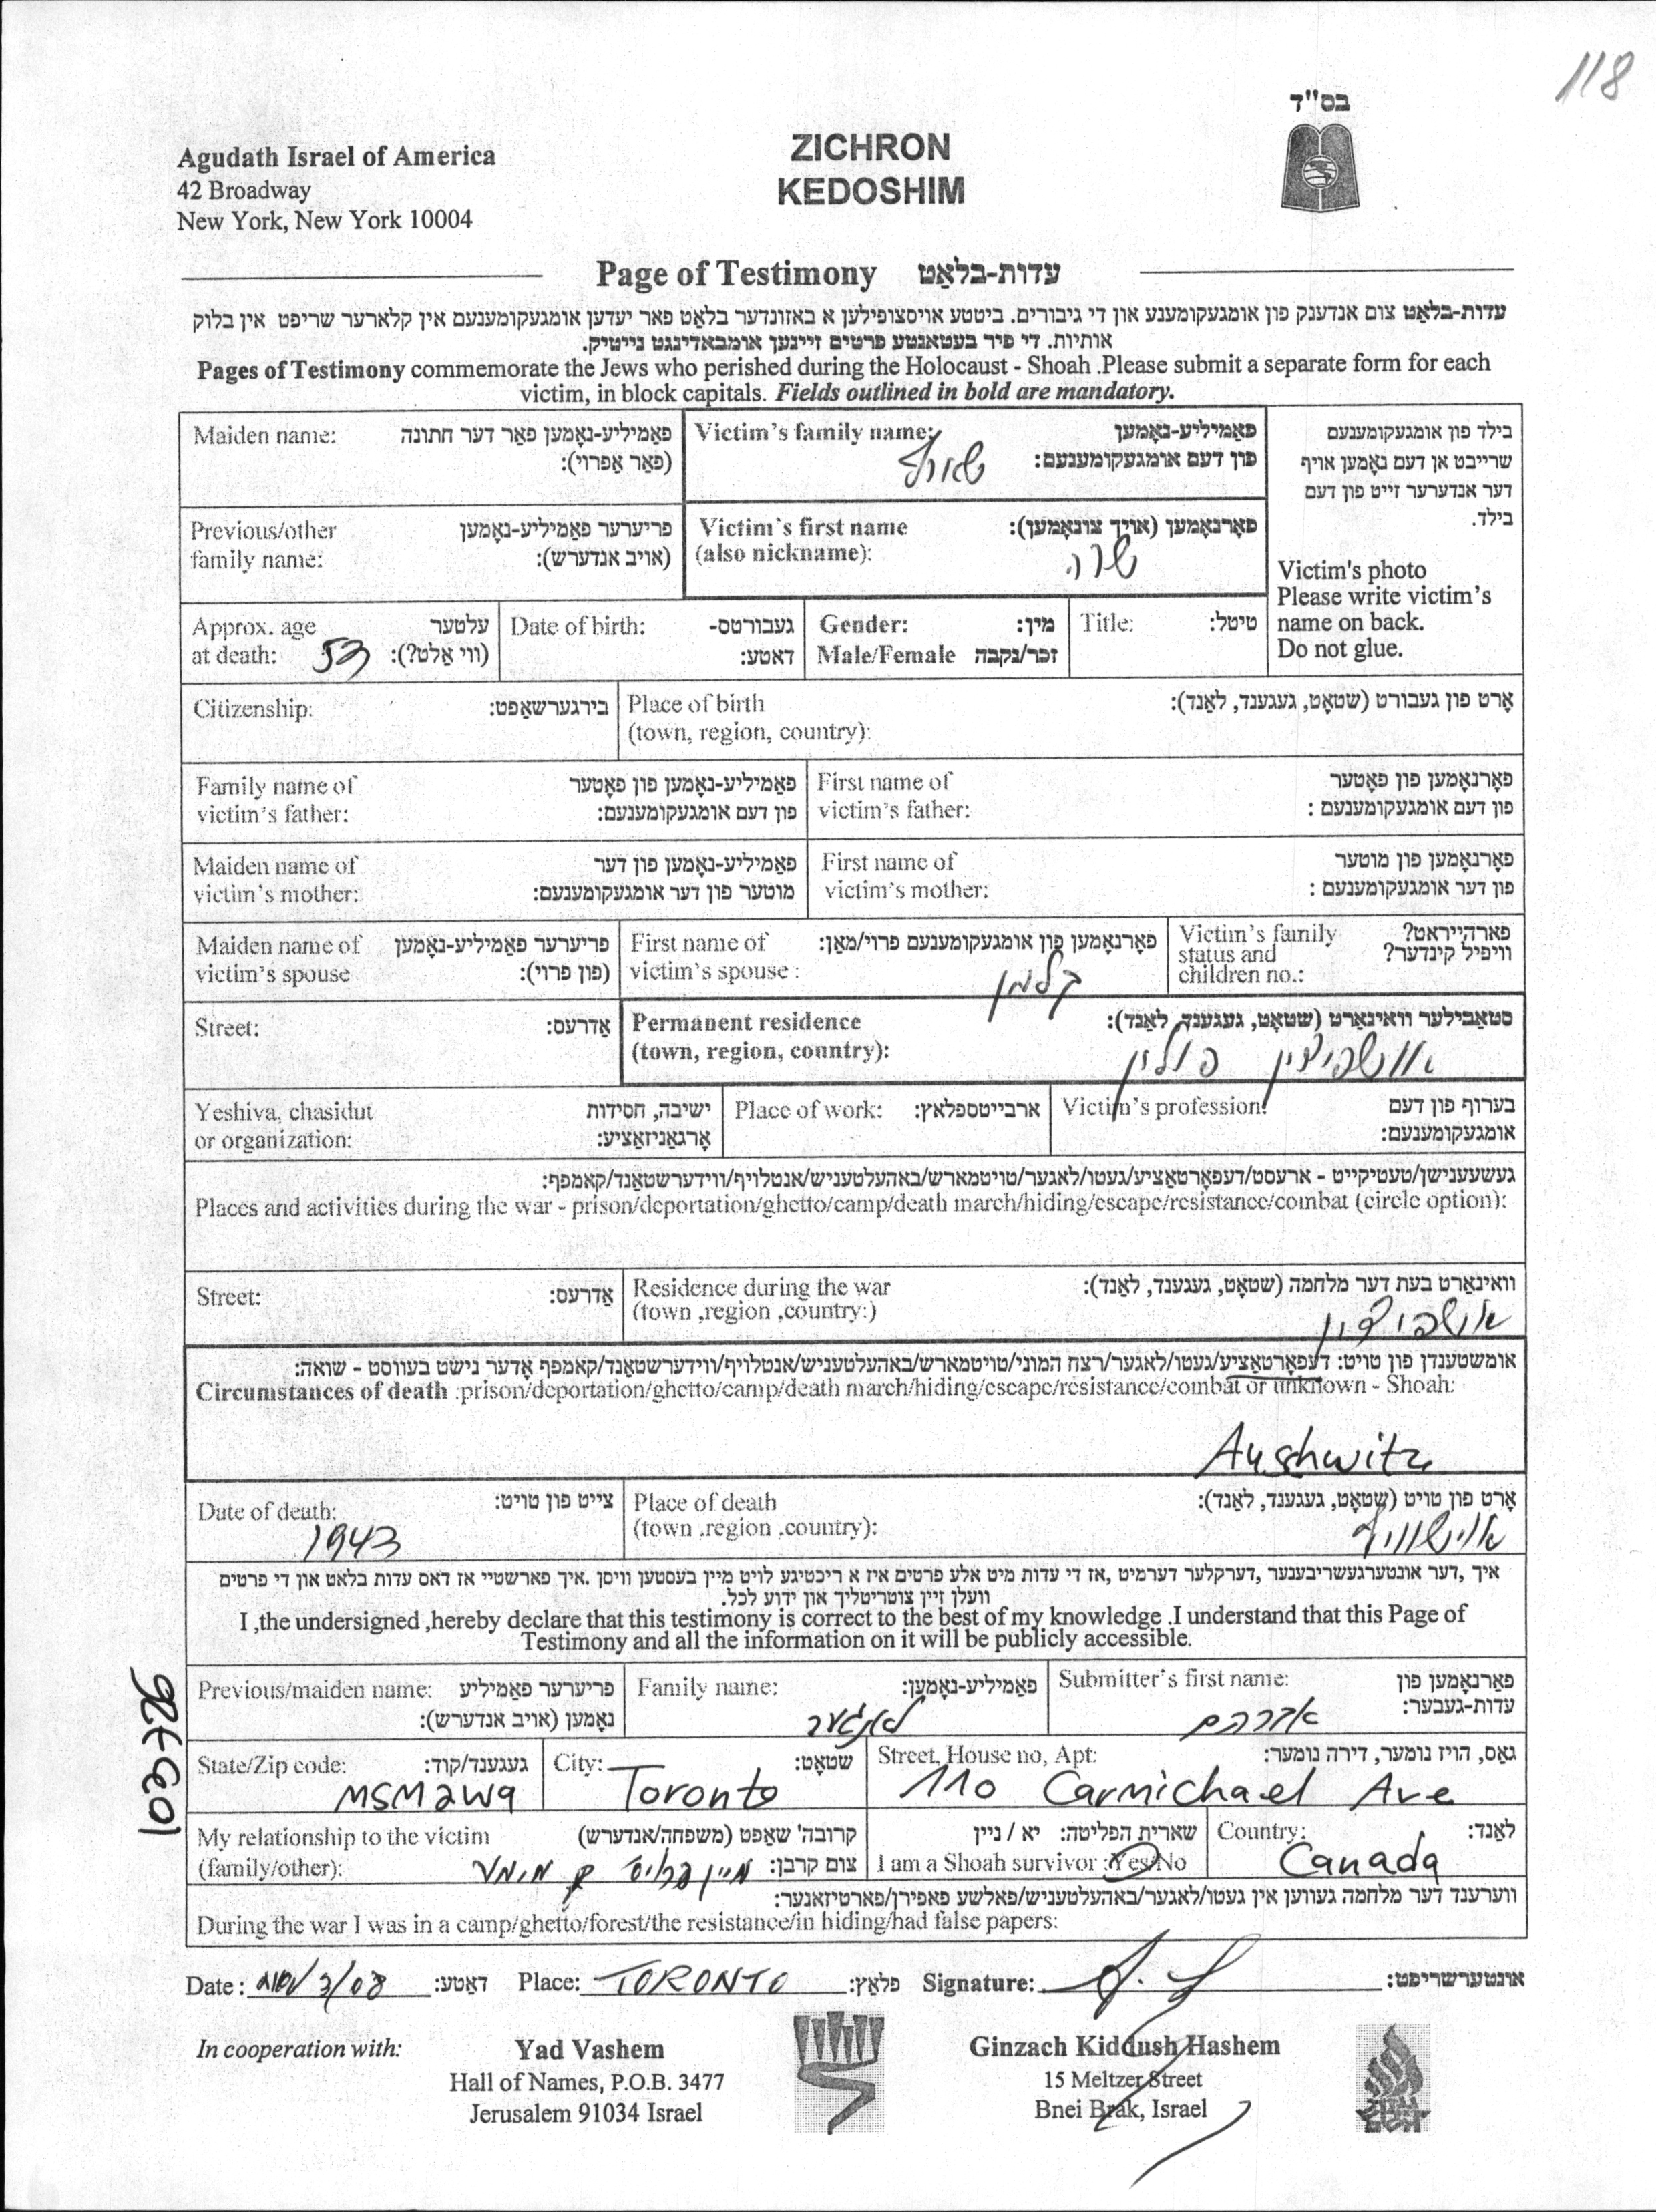 118
בס"ד
Agudath Israel of America
42 Broadway
New York, New York 10004
ZICHRON
KEDOSHIM
Page of Testimony עדות-בלאַט
עדות-בלאַט צום אנדענק פון אומגעקומענע און די גיבורים. ביטטע אויסצופילען א באזונדער בלאַט פאר יעדען אומגעקומענעם אין קלארער שריפט אין בלוק
אותיות. די פיר בעטאנטע פרטים זיינען אומבאדינגט נייטיק.
Pages of Testimony commemorate the Jews who perished during the Holocaust - Shoah .Please submit a separate form for each
victim, in block capitals. Fields outlined in bold are mandatory.
Maiden name: פאַמיליע-נאָמען פאַר דער חתונה
(פאַר אַפרוי):
Victim's family name: פאַמיליע-נאָמען
פון דעם אומגעקומענעם:
Previous/other פריערער פאַמיליע-נאָמען
family name: (אויב אנדערש):
Victim's first name פאָרנאָמען (אויך צונאָמען):
(also nickname): שרה
בילד פון אומגעקומענעם
שרייבט אן דעם נאָמען אויף
דער אנדערער זייט פון דעם
בילד.
Victim's photo
Please write victim's
name on back.
Do not glue.
Approx. age עלטער
at death: 53 (ווי אַלט?):
Date of birth: געבורטס-
דאטע:
Gender: מין:
Male/Female זכר/נקבה
Title: טיטל:
Citizenship: בירגערשאַפט:
Place of birth אָרט פון געבורט (שטאָט, געגענד, לאַנד):
(town, region, country):
Family name of פאַמיליע-נאָמען פון פאָטער
victim's father: פון דעם אומגעקומענעם:
First name of פאָרנאָמען פון פאָטער
victim's father: פון דעם אומגעקומענעם :
Maiden name of פאַמיליע-נאָמען פון דער
victim's mother: מוטער פון דער אומגעקומענעם:
First name of פאָרנאָמען פון מוטער
victim's mother: פון דער אומגעקומענעם :
Maiden name of פריערער פאַמיליע-נאָמען
victim's spouse (פון פרוי):
First name of פאָרנאָמען פון אומגעקומענעם פרוי/מאַן:
victim's spouse : קלמן
Victim's family פארהייראט?
status and וויפיל קינדער?
children no.:
Street: אַדרעס:
Permanent residence סטאַבילער וואוינאָרט (שטאָט, געגענד, לאַנד):
(town, region, country): אושפיצין פולין
Yeshiva, chasidut ישיבה, חסידות
or organization: אָרגאַניזאַציע:
Place of work: ארבייטספלאץ:
Victim's profession: בערוף פון דעם
אומגעקומענעם:
געשעענישן/טעטיקייט - ארעסט/דעפאָרטאַציע/געטו/לאגער/טויטמארש/באהעלטעניש/אנטלויף/ווידערשטאַנד/קאמפף:
Places and activities during the war - prison/deportation/ghetto/camp/death march/hiding/escape/resistance/combat (circle option):
Street: אַדרעס:
Residence during the war וואוינאָרט בעת דער מלחמה (שטאָט, געגענד, לאַנד):
(town ,region ,country:) אושפיצין
אומשטענדן פון טויט: דעפאָרטאַציע/געטו/לאגער/רצח המוני/טויטמארש/באהעלטעניש/אנטלויף/ווידערשטאַנד/קאמפף אָדער נישט בעוווסט - שואה:
Circumstances of death :prison/deportation/ghetto/camp/death march/hiding/escape/resistance/combat or unknown - Shoah:
Aushwitz
Date of death: צייט פון טויט:
1943
Place of death אָרט פון טויט (שטאָט, געגענד, לאַנד):
(town .region .country):
איך ,דער אונטערגעשריבענער ,דערקלער דערמיט ,אז די עדות מיט אלע פרטים איז א ריכטיגע לויט מיין בעסטען וויסן .איך פארשטיי אז דאס עדות בלאט און די פרטים
וועלן זיין צוטריטליך און ידוע לכל.
I ,the undersigned ,hereby declare that this testimony is correct to the best of my knowledge .I understand that this Page of
Testimony and all the information on it will be publicly accessible.
Previous/maiden name: פריערער פאַמיליע
נאָמען (אויב אנדערש):
Family name: פאַמיליע-נאָמען:
Submitter's first name: פאָרנאָמען פון
עדות-געבער:
אברהם
State/Zip code: געגענד/קוד:
M5M2W9
City: שטאָט:
Toronto
Street, House no, Apt: גאַס, הויז נומער, דירה נומער:
110 Carmichael Ave
My relationship to the victim קרובה'שאַפט (משפחה/אנדערש)
(family/other): צום קרבן:
I am a Shoah survivor :Yes/No שארית הפליטה: יא / ניין
Country: לאַנד:
Canada
ווערענד דער מלחמה געווען אין געטו/לאגער/באהעלטעניש/פאלשע פאפירן/פארטיזאנער:
During the war I was in a camp/ghetto/forest/the resistance/in hiding/had false papers:
Date: דאטע: Place: TORONTO פלאַץ: Signature: אונטערשריפט:
In cooperation with:
Yad Vashem
Hall of Names, P.O.B. 3477
Jerusalem 91034 Israel
Ginzach Kiddush Hashem
15 Meltzer Street
Bnei Brak, Israel